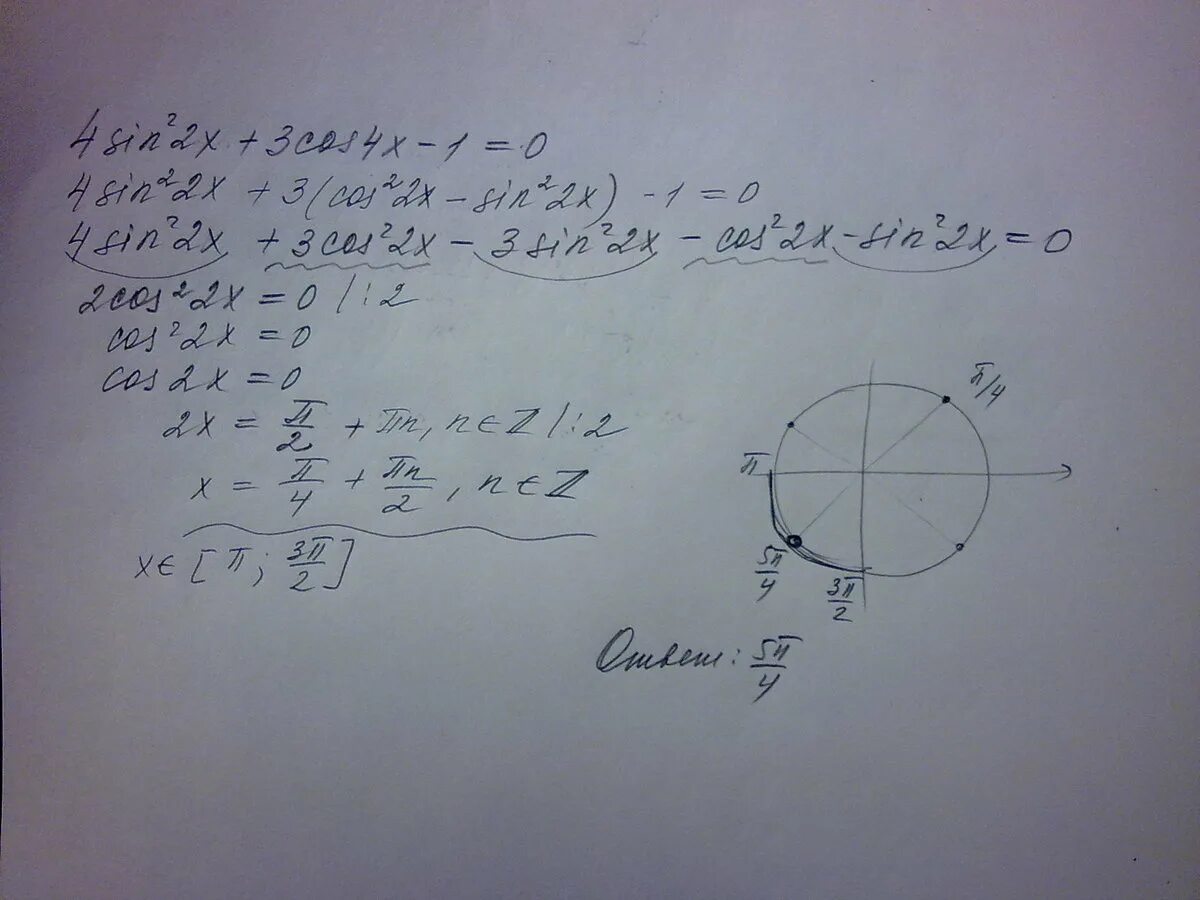 4 sin²2x + 3cos4x - 1 = 0
4 sin²2x + 3(cos²2x - sin²2x) - 1 = 0
4 sin²2x + 3cos²2x - 3 sin²2x - cos²2x - sin²2x = 0
2cos²2x = 0 |:2
cos²2x = 0
cos 2x = 0
2x = π/2 + πn, n∈Z |:2
x = π/4 + πn/2, n∈Z
x∈[π; 3π/2]
π/4
π
5π/4
3π/2
Ответ: 5π/4